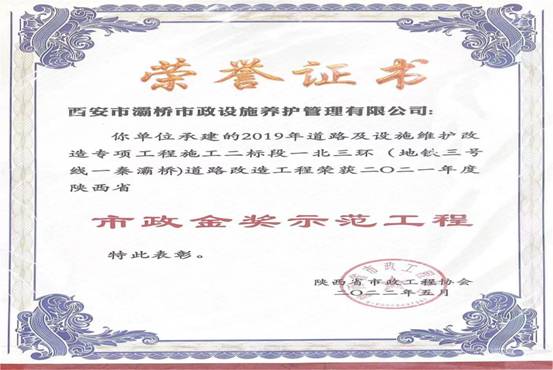 荣誉证书
西安市灞桥市政设施养护管理有限公司:
你单位承建的2019年道路及设施维护改
造专项工程施工二标段一北三环（地铁三号
线一秦灞桥)道路改造工程荣获二〇二一年度
陕西省
市政金奖示范工程
特此表彰。
陕西省市政工程协会
二〇二二年五月